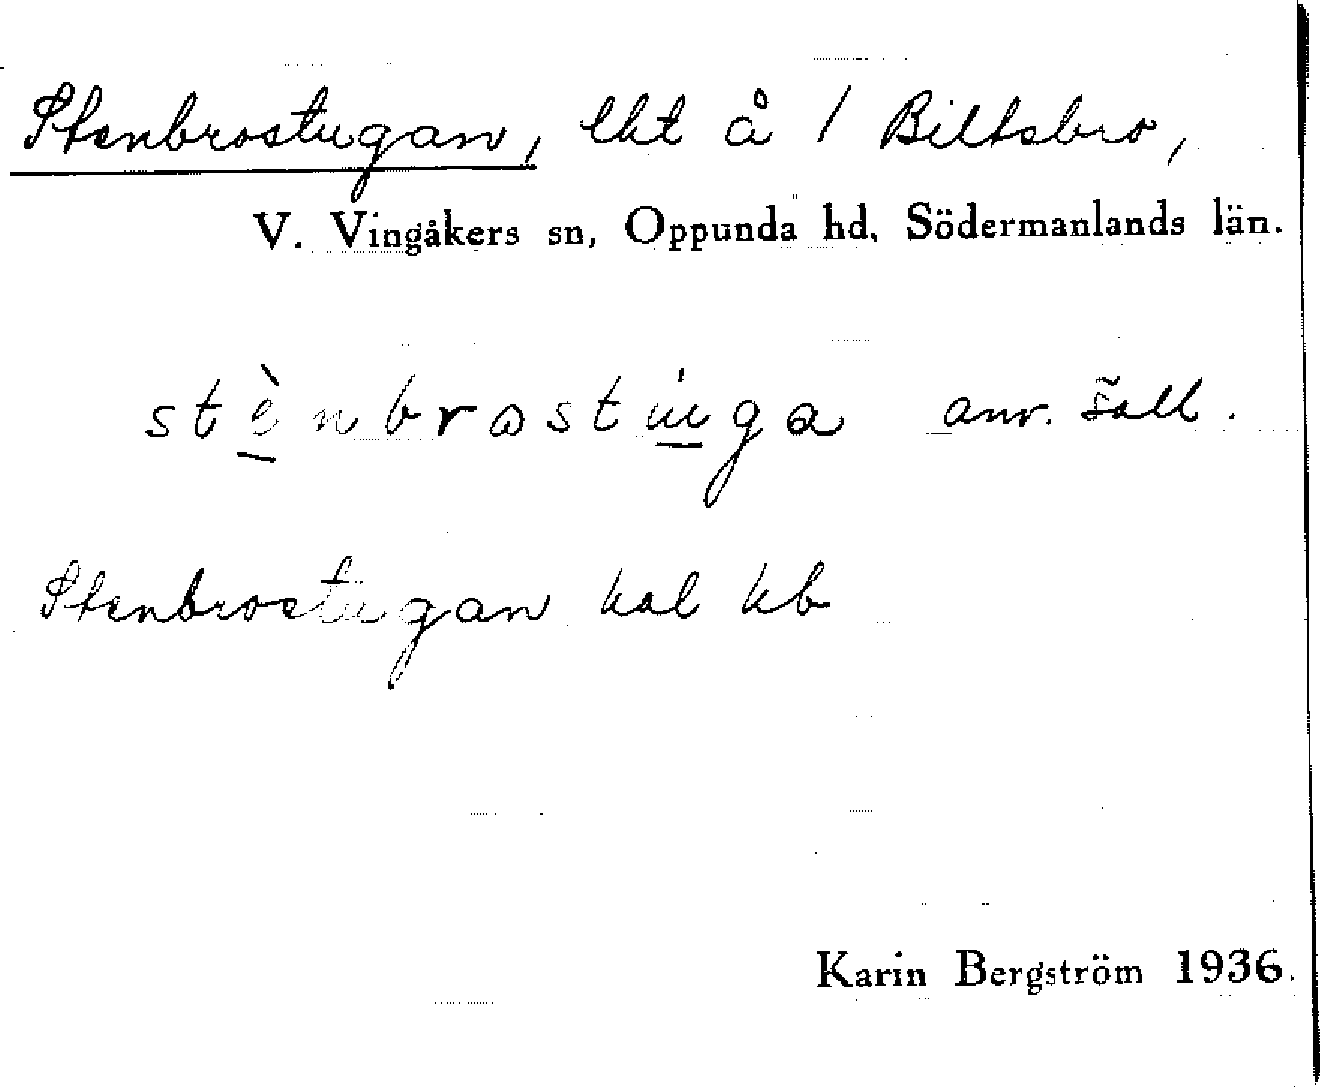 Stenbrostugan, lht å 1 Biltsbro,
V. Vingåkers sn, Oppunda hd, Södermanlands län.
stènbrostúga anv. säll.
Stenbrostugan hal kb
Karin Bergström 1936.